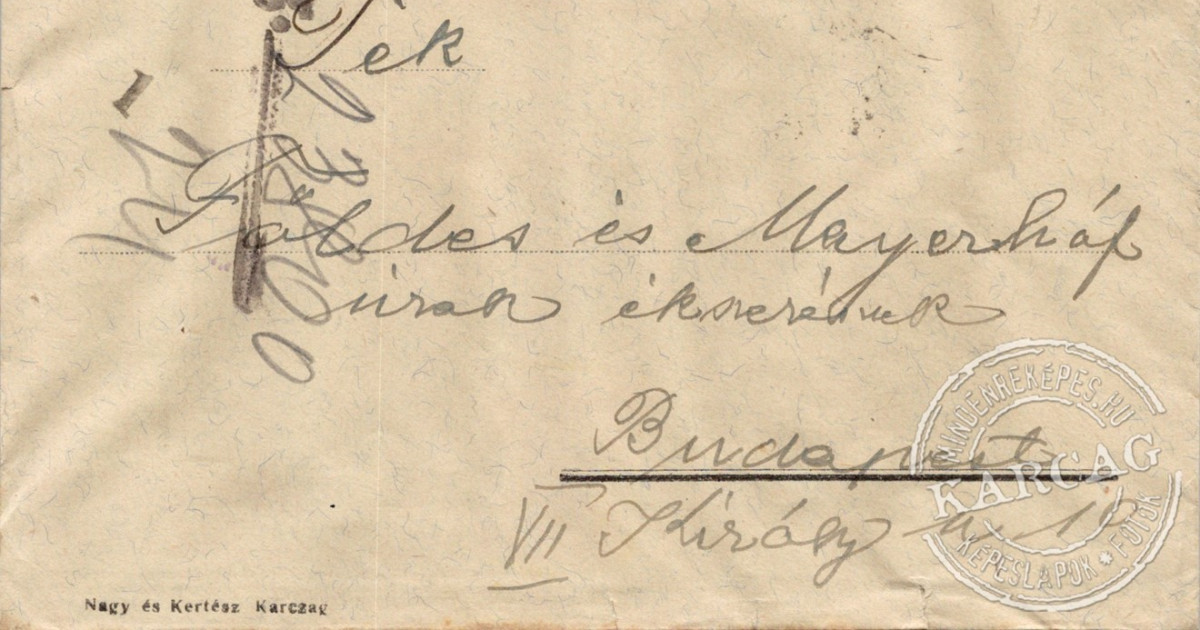 Tek
1
Földes és Mayerhóf
úrak ékszerészek
Budapest
VII Király u. 1
Nagy és Kertész Karczag
MINDENREKÉPES.HU
KARCAG
KÉPESLAPOK * FOTÓK